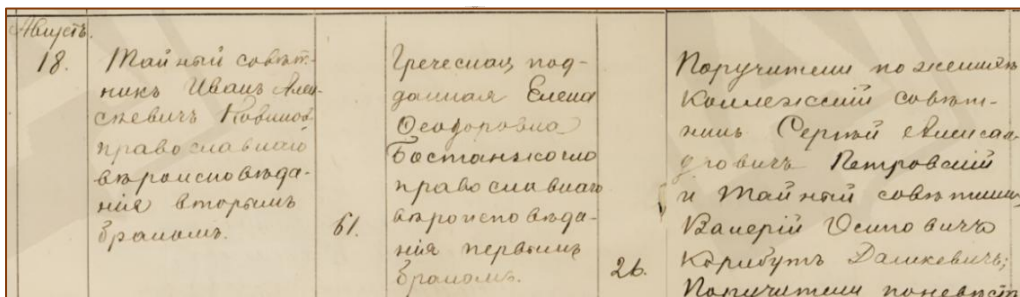 Августъ.
18.
Тайный совѣт-
никъ Иванъ Алек-
сѣевичъ Новиковъ
православнаго
вѣроисповѣда-
нія вторымъ
бракомъ.
61.
Греческая под-
данная Елена
Ѳеодоровна
Бостанжогло
православнаго
вѣроисповѣда-
нія первымъ
бракомъ.
26.
Поручители по женихѣ
Коллежскій совѣт-
никъ Сергѣй Алексан-
дровичъ Петровскій
и Тайный совѣтникъ
Валерій Осиповичъ
Корибутъ Дашкевичъ;
Поручители по невѣстѣ